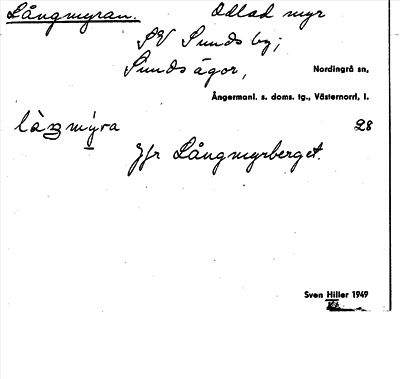 Långmyran. Odlad myr
SV Sunds by;
Sunds ägor, Nordingrå sn,
Ångermanl. s. doms. tg., Västernorrl. l.
làŋmý̱ra 28
Jfr Långmyrberget.
Sven Hiller 1949